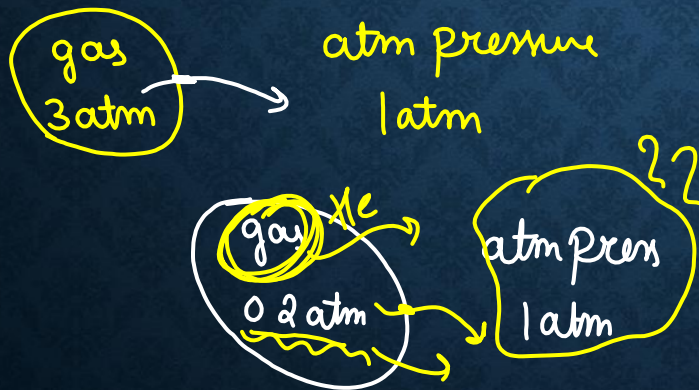 gas
3 atm
atm pressure
1 atm
??
gas
He
0 2 atm
atm press
1 atm